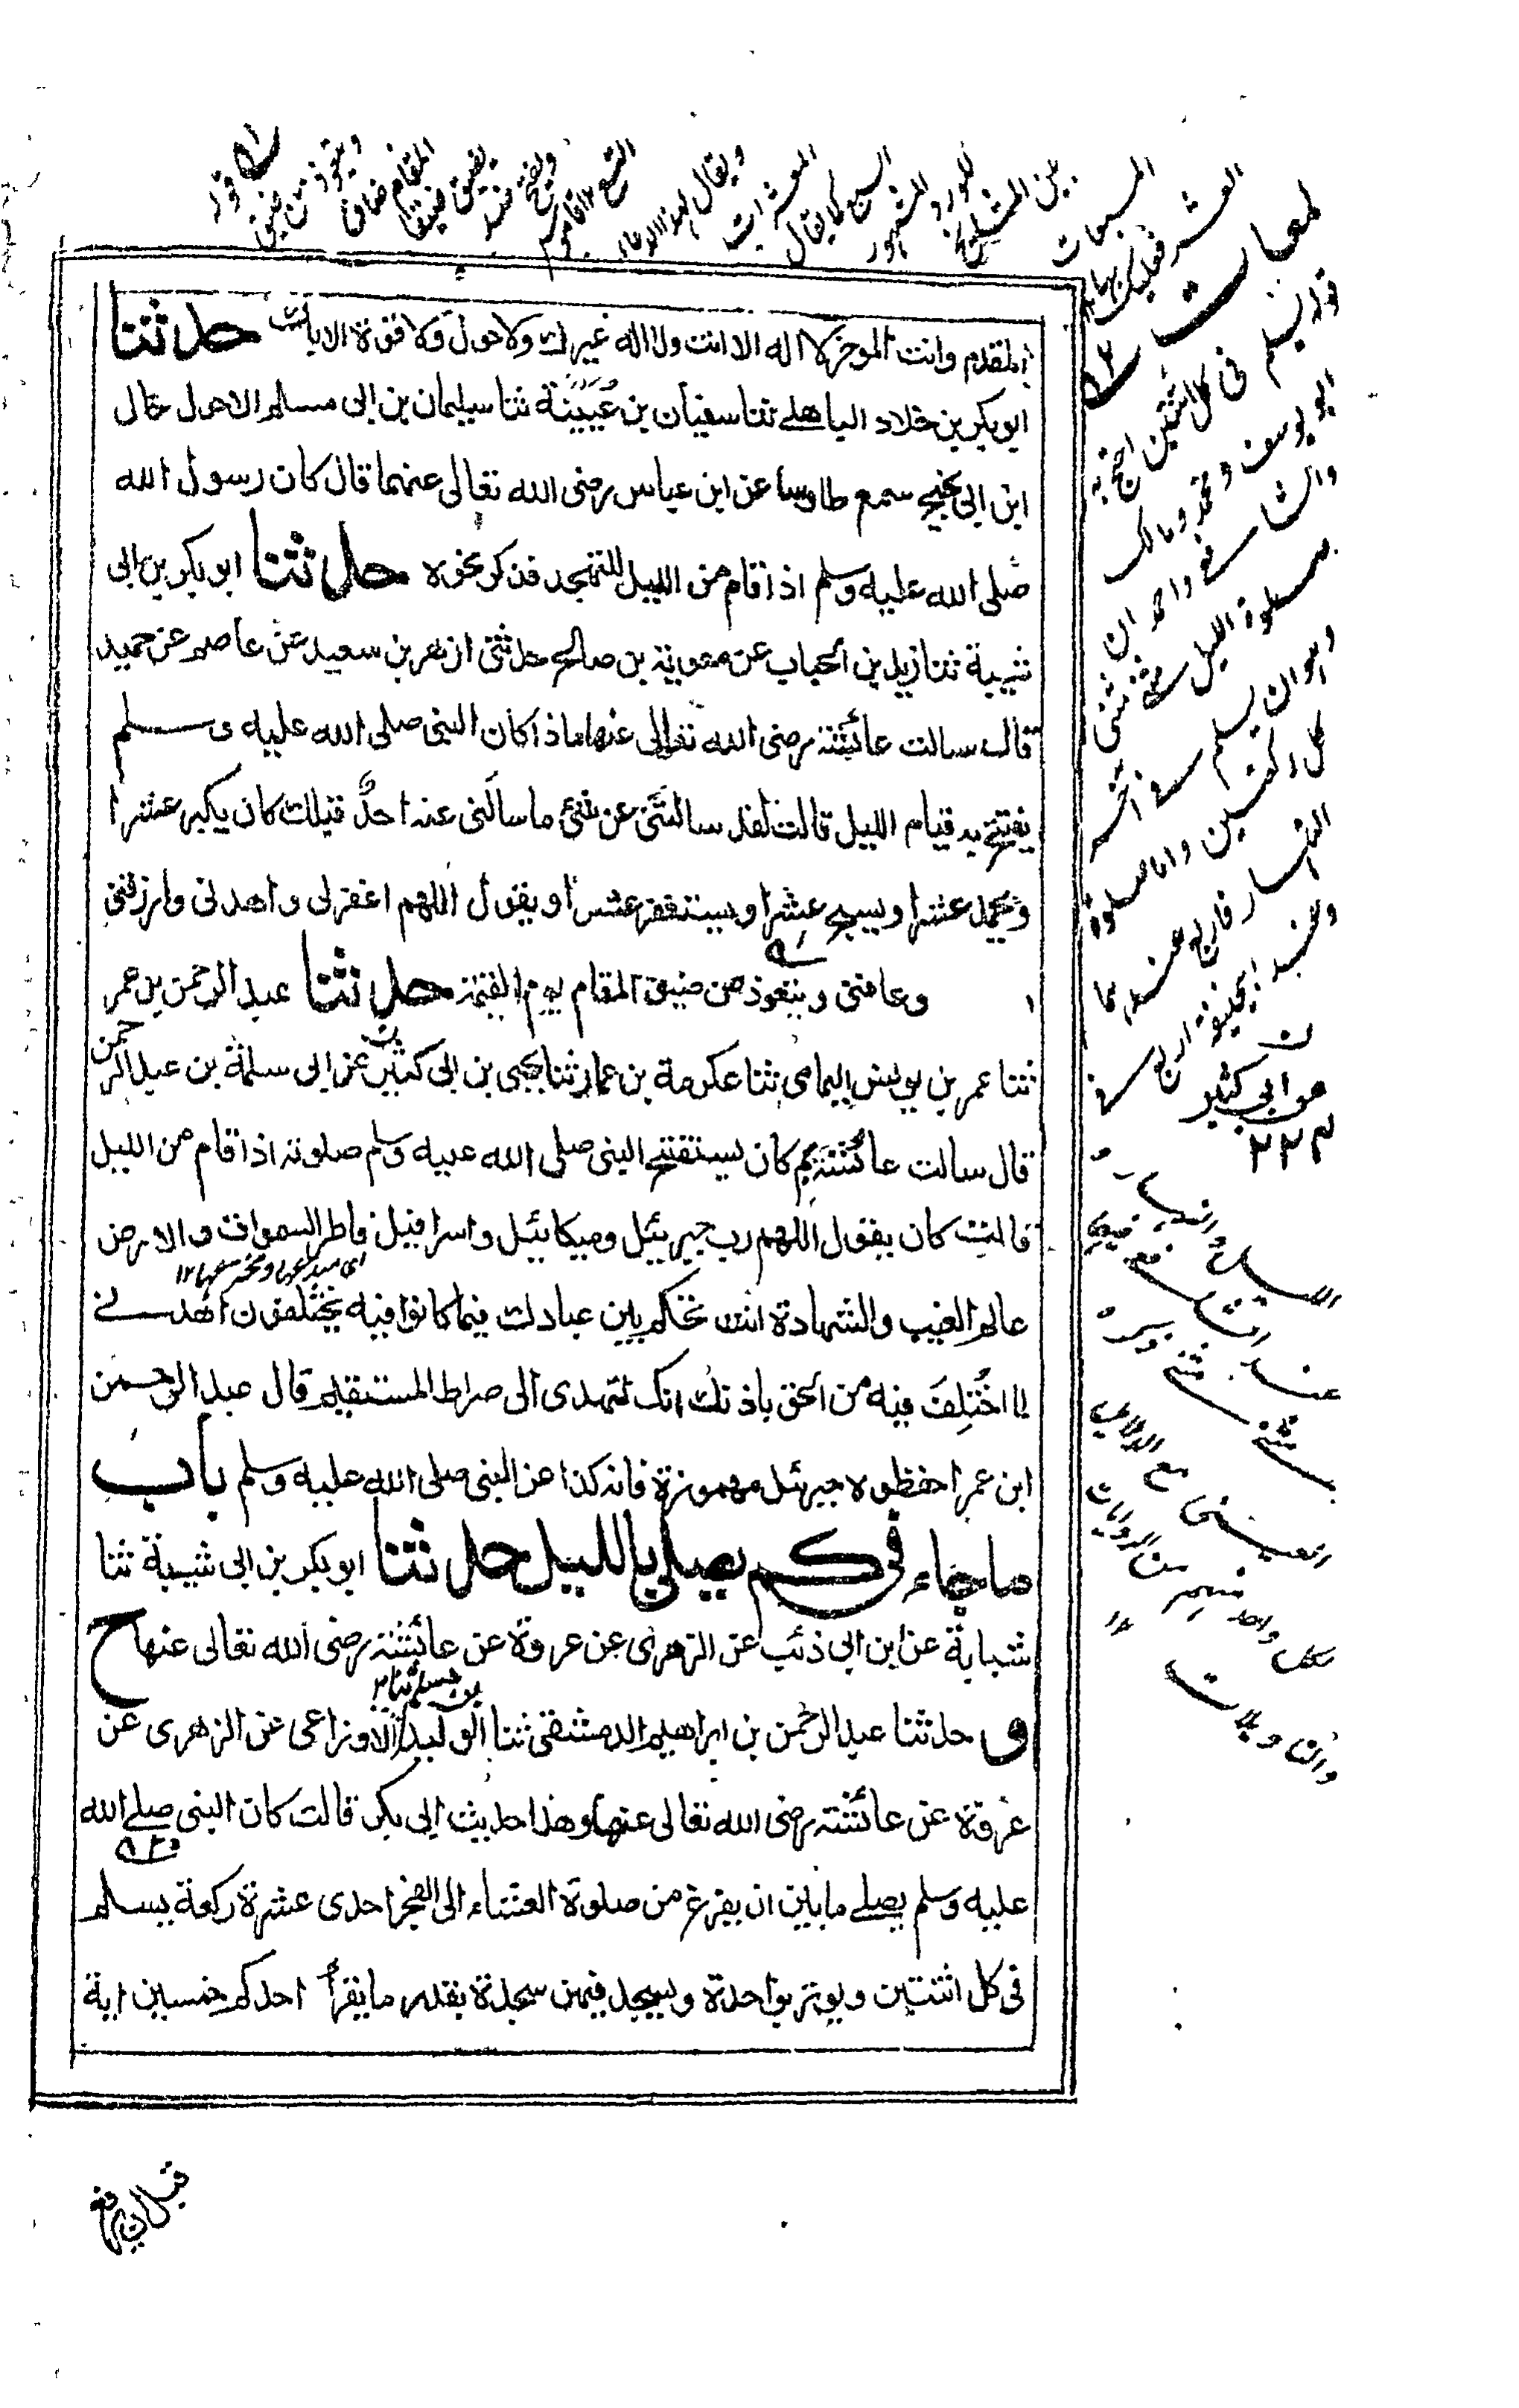 المقدم وانت الموخر لا اله الا انت ولا اله غيرك ولا حول ولا قوة الا بك حدثنا
ابو بكر بن خلاد الباهلے ثنا سفيان بن عُيَيْنَة ثنا سليمان بن ابى مسلم الاحول خال
ابن ابى نجيح سمع طاوسا عن ابن عباس رضى الله تعالى عنهما قال كان رسول الله
صلى الله عليه وسلم اذا قام من الليل للتهجد فذكر نحوه حدثنا ابو بكر بن ابى
شيبة ثنا زيد بن الحباب عن معوية بن صالح حدثنى ازهر بن سعيد عن عاصم عن حميد
قال سالت عائشة رضى الله تعالى عنها ماذا كان النبى صلى الله عليه وسلم
يفتتح به قيام الليل قالت لقد سالتنى عن شئ ما سالنى عنه احدٌ قبلك كان يكبر عشرا
ويحمد عشرا ويسبح عشرا ويستغفر عشرا ويقول اللهم اغفرلى واهدنى وارزقنى
وعافنى ويتعوذ من ضيق المقام يوم القيمة حدثنا عبد الرحمن بن عمر
ثنا عمر بن يونس اليمامى ثنا عكرمة بن عمار ثنا يحيى بن ابى كثير عن ابى سلمة بن عبد الرحمن
قال سالت عائشة بم كان يستفتح النبى صلى الله عليه وسلم صلوته اذا قام من الليل
قالت كان يقول اللهم رب جبرئيل وميكائيل واسرافيل فاطر السموات والارض
عالم الغيب والشهادة انت تحكم بين عبادك فيما كانوا فيه يختلفون اهدنے
لما اختُلِفَ فيه من الحق باذنك انك لتهدى الى صراط المستقيم قال عبد الرحمن
ابن عمر احفظوه جبرئل مهموزة فانه كذا عن النبى صلى الله عليه وسلم باب
ما جاء فى كم يصلى بالليل حدثنا ابو بكر بن ابى شيبة ثنا
شبابة عن ابن ابى ذئب عن الزهرى عن عروة عن عائشة رضى الله تعالى عنها ح
بن مسلم ثنا
و حدثنا عبد الرحمن بن ابراهيم الدمشقى ثنا الوليد الاوزاعى عن الزهرى عن
عروة عن عائشة رضى الله تعالى عنها وهذا حديث ابى بكر قالت كان النبى صلے الله
عليه وسلم يصلے ما بين ان يفرغ من صلوة العشاء الى الفجر احدى عشرة ركعة يسلم
فى كل اثنتين ويوتر بواحدة ويسجد فيهن سجدة بقدر ما يقرأ احدكم خمسين اية
لمعات
قوله يسلم فى كل اثنتين احتج به
ابو يوسف ومحمد ومالك
والشافعے واحمد ان
صلوة الليل مثنى مثنى
وهو ان يسلم فے آخر
كل ركعتين واما صلوة
النهار فاربع عندهما
وعند ابيحنيفة اربع فے
الليل والنهار
وعند الشافعے فيهما
مثنى مثنى
هو ابى كثير
قبل ان يرفع